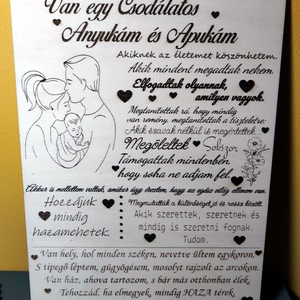 Van egy Csodálatos
Anyukám és Apukám
Akiknek az életemet köszönhetem.
Akik mindent megadtak nekem.
Elfogadtak olyannak,
amilyen vagyok.
Megtanítottak rá, hogy mindig
van remény, megtanítottak a tiszteletre.
Akik szavak nélkül is megértettek.
Megöleltek Sokszor
Támogattak mindenben,
hogy soha ne adjam fel.
Akkor is mellettem voltak, amikor úgy éreztem, hogy az egész világ ellenem van.
Hozzájuk
mindig
hazamehetek.
Megmutatták a különbséget jó és rossz között.
Akik szerettek, szeretnek és
mindig is szeretni fognak.
Tudom.
Van hely, hol minden széken, nevetve ültem egykoron.
S tipegő léptem, gügyögésem, mosolyt rajzolt az arcokon.
Van ház, ahova tartozom, s bár más otthonban élek,
Tehozzád, ha elmegyek, mindig HAZA térek.